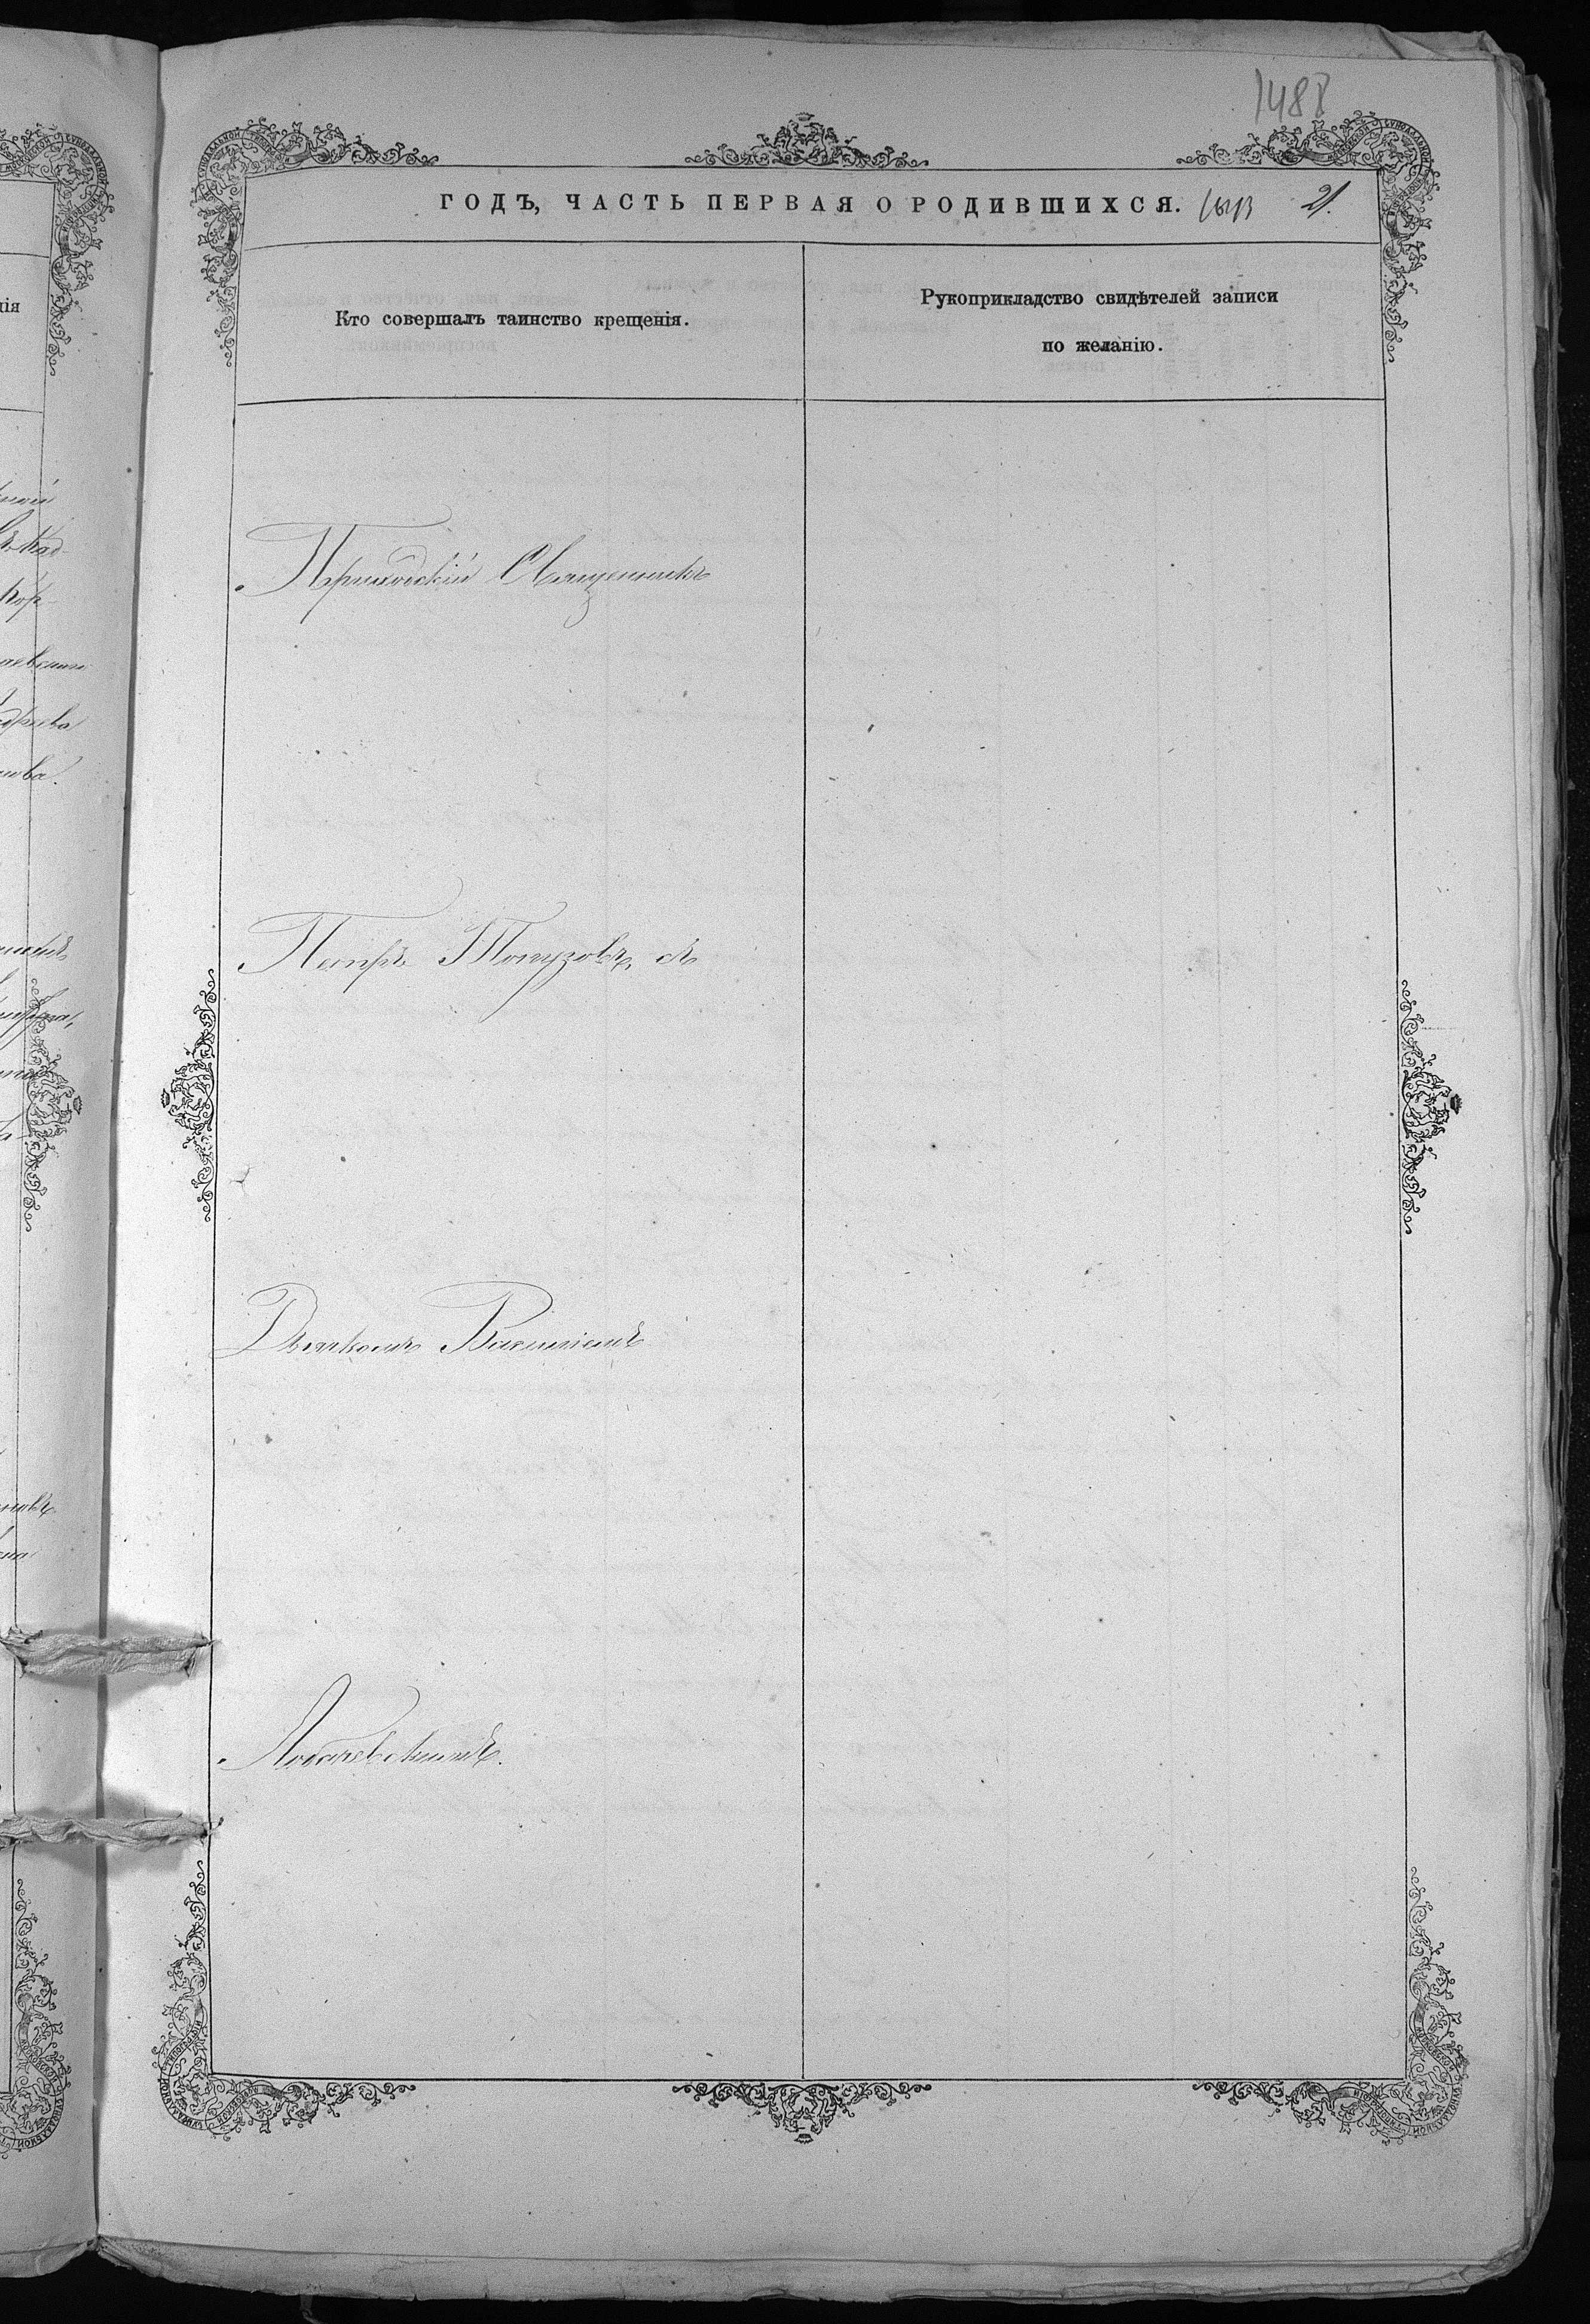 1488
ГОДЪ, ЧАСТЬ ПЕРВАЯ О РОДИВШИХСЯ.
21.
Кто совершалъ таинство крещенія.
Рукоприкладство свидѣтелей записи
по желанію.
Приходскій Священникъ
Петръ Топузовъ, съ
Дьячкомъ Василіемъ
Лобачевскимъ.